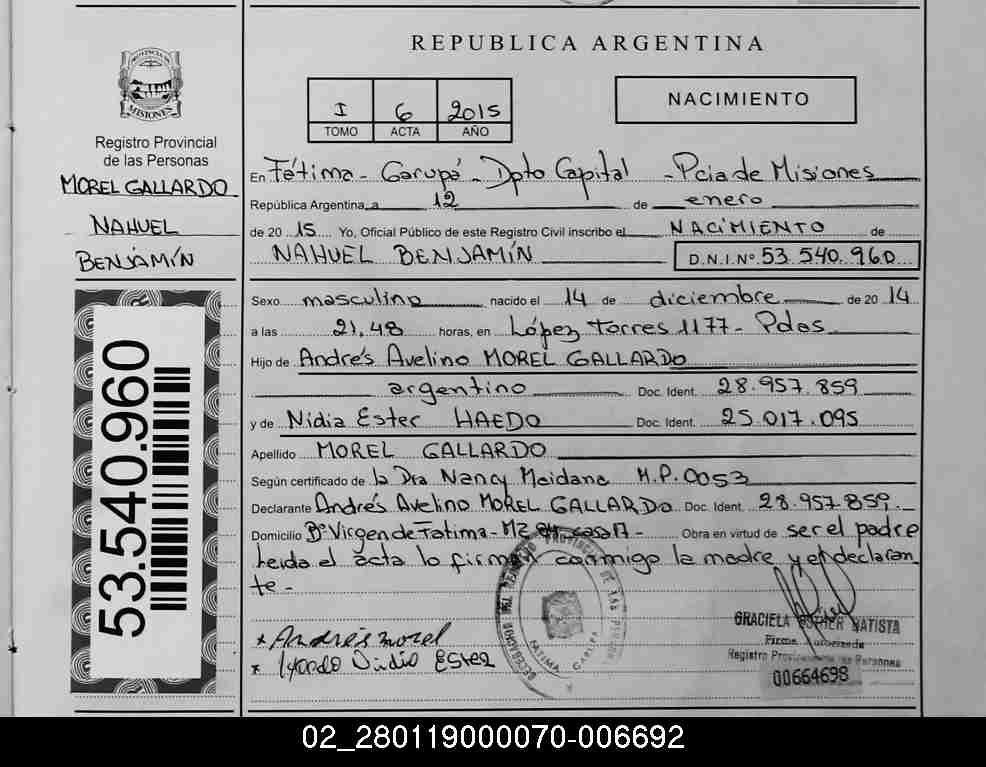 REPUBLICA ARGENTINA
PROVINCIA DE
MISIONES
Registro Provincial
de las Personas
MOREL GALLARDO
NAHUEL
BENJAMÍN
53.540.960
I 6 2015
TOMO ACTA AÑO
NACIMIENTO
En Fátima - Garupá - Dpto Capital - Pcia de Misiones
República Argentina, a 12 de enero
de 20 15 Yo, Oficial Público de este Registro Civil inscribo el NACIMIENTO de
NAHUEL BENJAMÍN D.N.I.Nº 53.540.960
Sexo masculino nacido el 14 de diciembre de 20 14
a las 21,48 horas, en López Torres 1177 - Pdas
Hijo de Andrés Avelino MOREL GALLARDO
argentino Doc. Ident. 28.957.859
y de Nidia Ester HAEDO Doc. Ident. 25.017.095
Apellido MOREL GALLARDO
Según certificado de la Dra Nancy Maidana M.P. 0053
Declarante Andrés Avelino MOREL GALLARDO Doc. Ident. 28.957.859.
Domicilio Bº Virgen de Fatima - MZ casa - Obra en virtud de ser el padre
leida el acta lo firman conmigo la madre y el declaran
te -
* Andrés morel
* Haedo Nidia Ester
FATIMA GARUPA
GRACIELA BATISTA
Firma Autorizada
Registro Provincial de las Personas
00664698
02_280119000070-006692